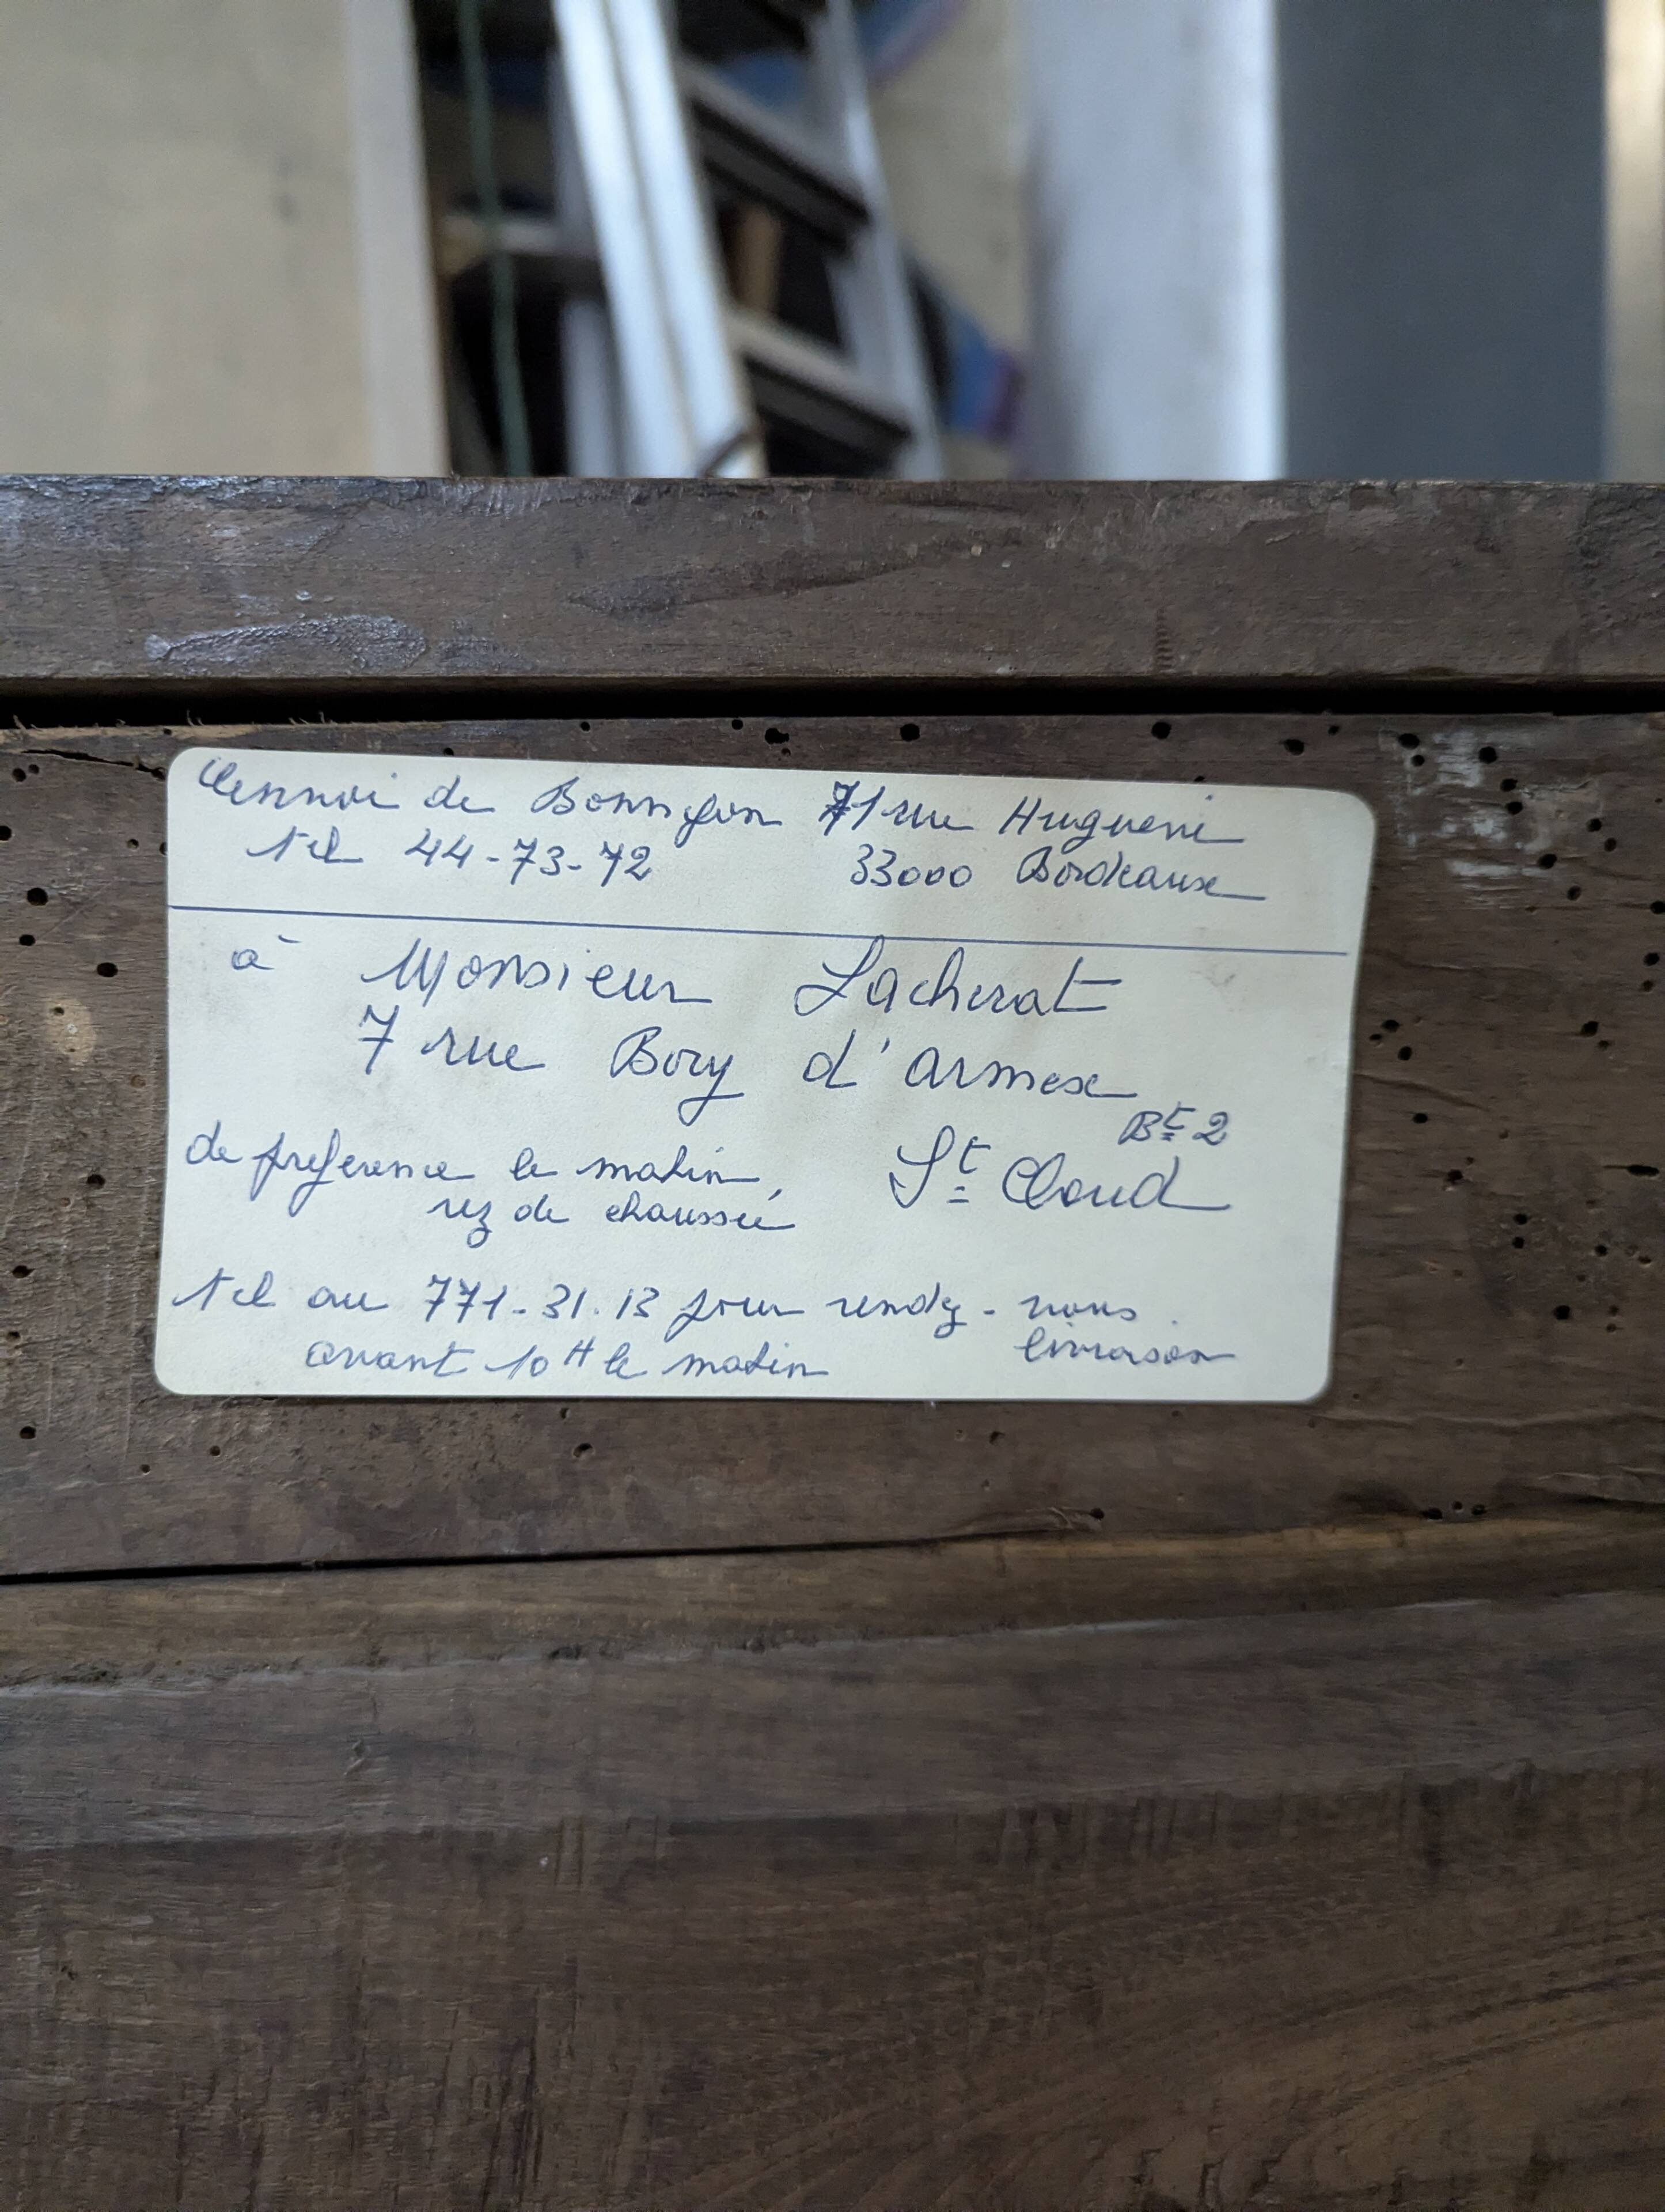 envoi de 71 rue Huguerie
tel 44-73-72 33000 Bordeaux
à Monsieur Lacherat
7 rue Bory d'armex
Bt 2
de preference le matin, St Cloud
rez de chaussée
tel au 771-31.13 pour rendez-vous
avant 10H le matin livraison